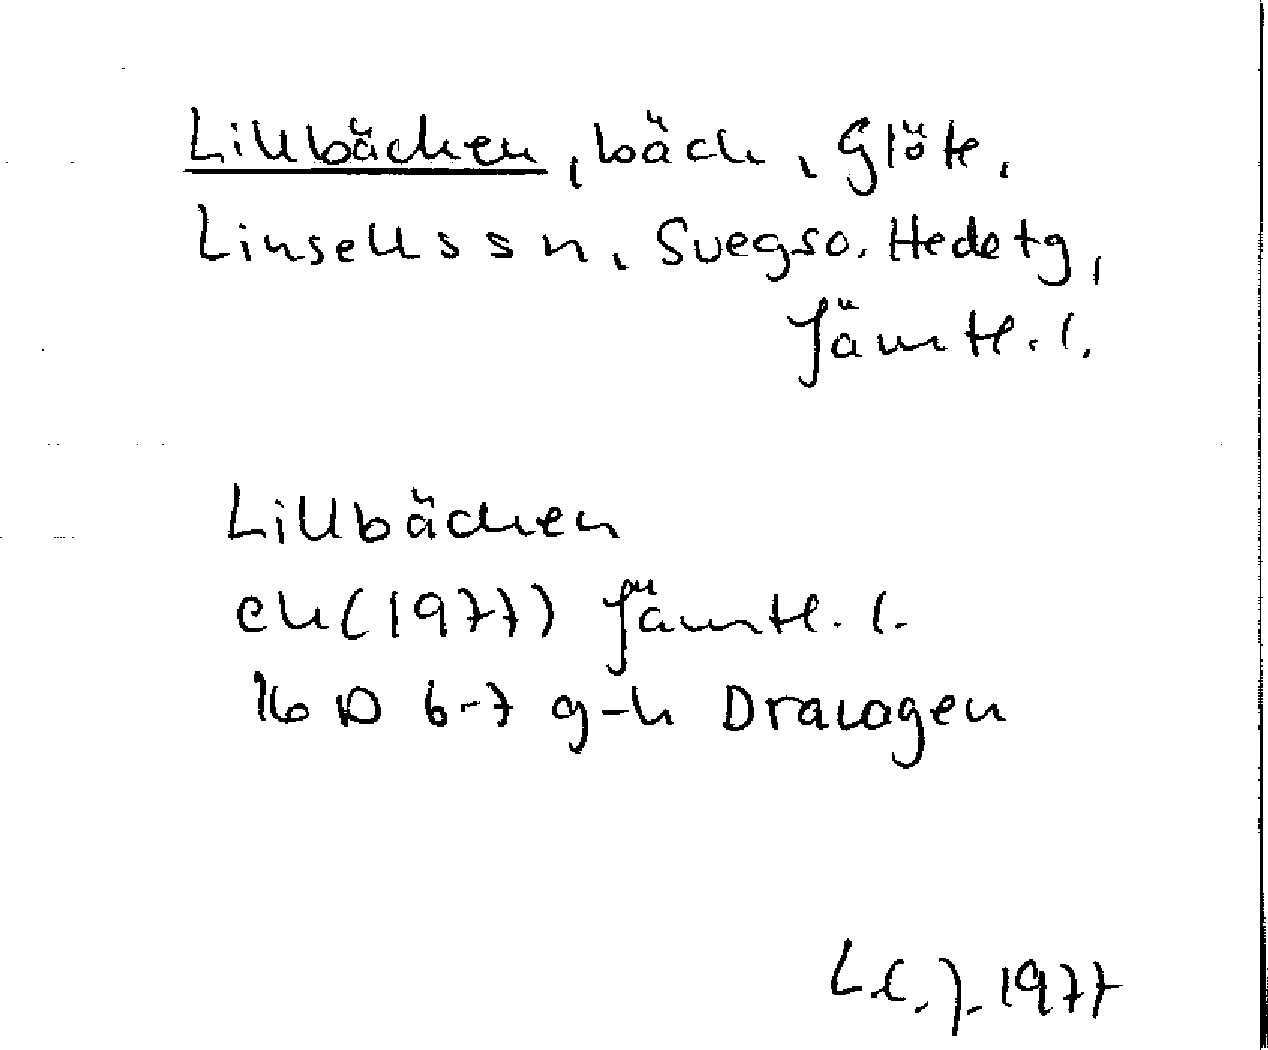 Lillbäcken, bäck, Glöte,
Linsells sn, Svegs o. Hede tg,
Jämtl. l.
Lillbäcken
ek (1977) Jämtl. l.
16 D 6-7 g-h Dravagen
L.C.J. 1977